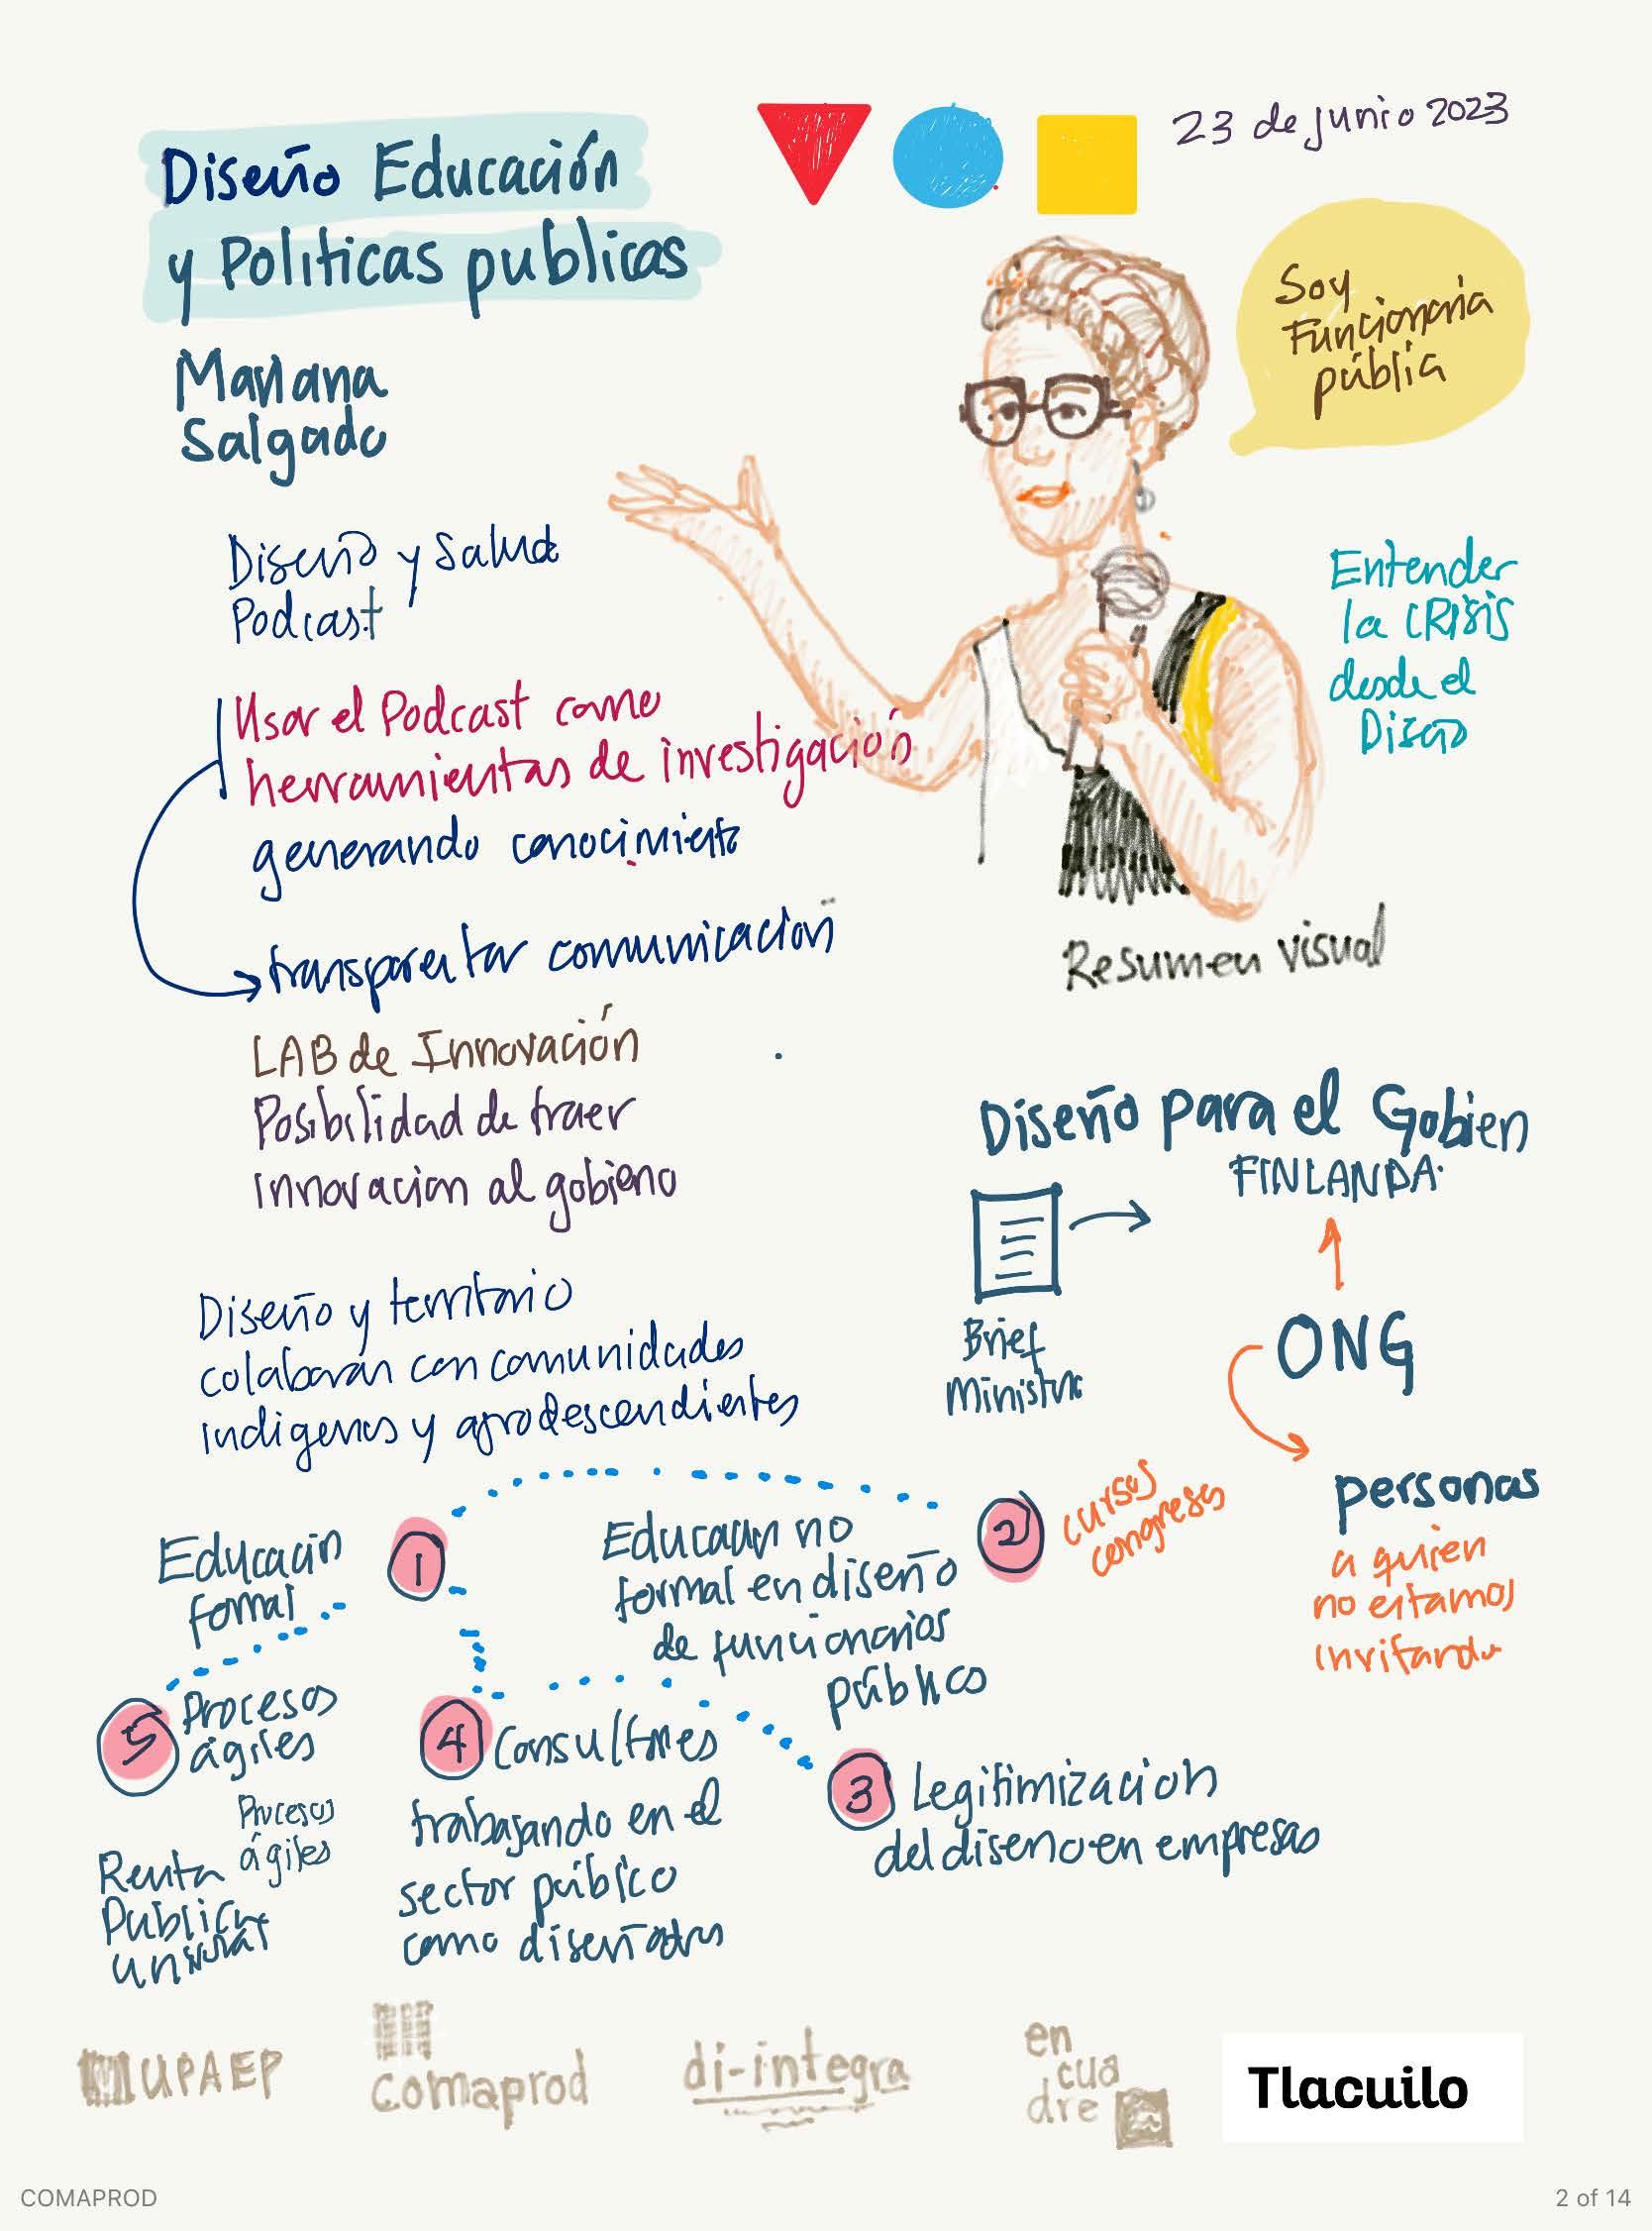 Diseño Educación
y Políticas publicas
23 de junio 2023
Mariana
Salgado
Soy
Funcionaria
públia
Diseño y Salud
Podcast
Entender
la CRISIS
desde el
Diseño
Usar el Podcast como
herramientas de investigación
generando conocimiento
transparentar comunicación
Resumen visual
LAB de Innovación
Posibilidad de traer
innovacion al gobierno
Diseño para el Gobien
FINLANDA
Brief
ONG
personas
a quien
no estamos
invitando
Diseño y territorio
colaboran con comunidades
indigenas y afrodescendientes
Educación
formal
1
Educacun no
formal en diseño
de funcionarios
público
2
cursos
congresos
5
Procesos
ágiles
Procesos
ágiles
Renta
Publica
4
Consultores
trabajando en el
sector público
como diseñadores
3
Legitimizacion
del diseno en empresas
UPAEP
Comaprod
di-integra
en
cua
dre
Tlacuilo
COMAPROD
2 of 14